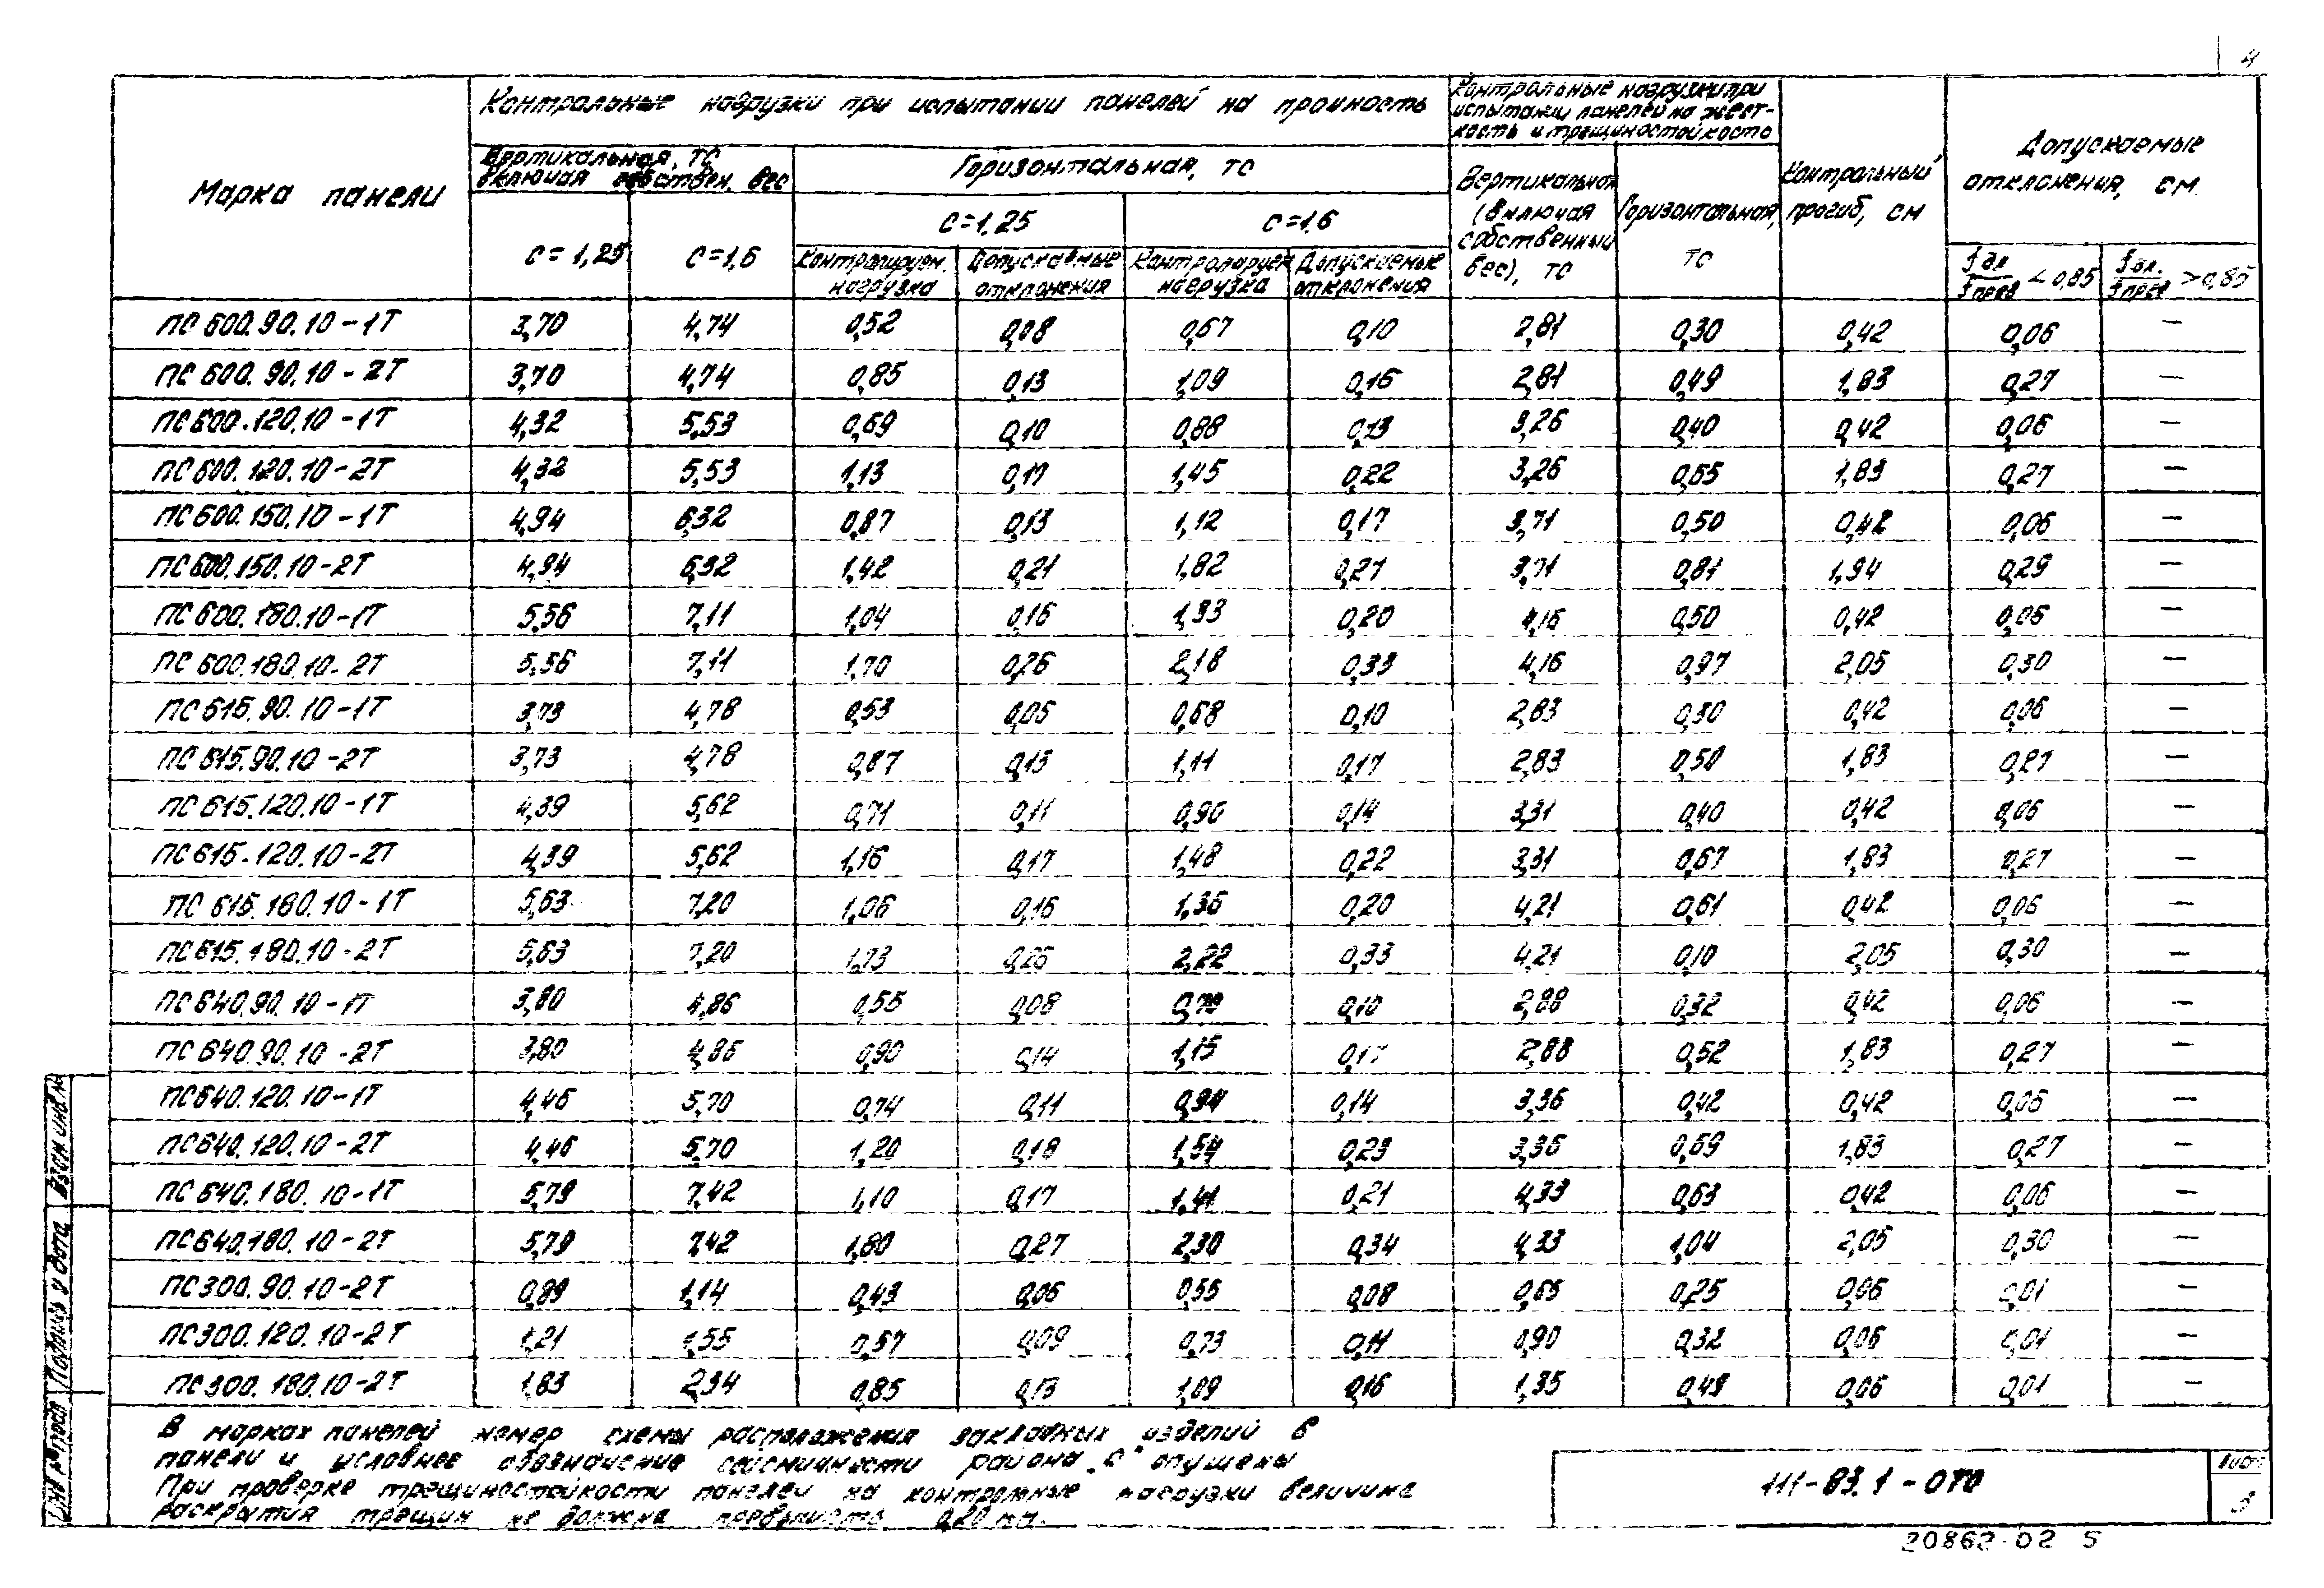 4
Контрольные нагрузки при испытании панелей на прочность
Контрольные нагрузки при
испытании панелей на жест-
кость и трещиностойкость
Марка панели
Вертикальная, тс
включая собствен. вес
Горизонтальная, тс
Вертикальной
(включая
собственный
вес), тс
Горизонтальная,
тс
Контрольный
прогиб, см
Допускаемые
отклонения, см.
С=1,25
С=1,6
С=1,25
С=1,6
Контролируем. нагрузка
Допускаемые отклонения
Контролируем нагрузка
Допускаемые отклонения
fдл/fпред < 0,85
fдл./fпред > 0,85
ПС 600.90.10-1Т 3,70 4,74 0,52 0,08 0,67 0,10 2,81 0,30 0,42 0,06 —
ПС 600.90.10-2Т 3,70 4,74 0,85 0,13 1,09 0,16 2,81 0,49 1,83 0,27 —
ПС 600.120.10-1Т 4,32 5,53 0,69 0,10 0,88 0,13 3,26 0,40 0,42 0,06 —
ПС 600.120.10-2Т 4,32 5,53 1,13 0,17 1,45 0,22 3,26 0,65 1,83 0,27 —
ПС 600.150.10-1Т 4,94 6,32 0,87 0,13 1,12 0,17 3,71 0,50 0,42 0,06 —
ПС 600.150.10-2Т 4,94 6,32 1,42 0,21 1,82 0,27 3,71 0,81 1,94 0,29 —
ПС 600.180.10-1Т 5,56 7,11 1,04 0,16 1,33 0,20 4,16 0,50 0,42 0,06 —
ПС 600.180.10-2Т 5,56 7,11 1,70 0,26 2,18 0,33 4,16 0,97 2,05 0,30 —
ПС 615.90.10-1Т 3,73 4,78 0,53 0,05 0,68 0,10 2,83 0,30 0,42 0,06 —
ПС 615.90.10-2Т 3,73 4,78 0,87 0,13 1,11 0,17 2,83 0,50 1,83 0,27 —
ПС 615.120.10-1Т 4,39 5,62 0,71 0,11 0,90 0,14 3,31 0,40 0,42 0,06 —
ПС 615.120.10-2Т 4,39 5,62 1,16 0,17 1,48 0,22 3,31 0,67 1,83 0,27 —
ПС 615.180.10-1Т 5,63 7,20 1,06 0,16 1,36 0,20 4,21 0,61 0,42 0,06 —
ПС 615.180.10-2Т 5,63 7,20 1,73 0,26 2,22 0,33 4,21 0,10 2,05 0,30 —
ПС 640.90.10-1Т 3,80 4,86 0,55 0,08 0,70 0,10 2,88 0,32 0,42 0,06 —
ПС 640.90.10-2Т 3,80 4,86 0,90 0,14 1,15 0,17 2,88 0,52 1,83 0,27 —
ПС 640.120.10-1Т 4,46 5,70 0,74 0,11 0,94 0,14 3,36 0,42 0,42 0,06 —
ПС 640.120.10-2Т 4,46 5,70 1,20 0,18 1,54 0,23 3,36 0,69 1,83 0,27 —
ПС 640.180.10-1Т 5,79 7,42 1,10 0,17 1,41 0,21 4,33 0,63 0,42 0,06 —
ПС 640.180.10-2Т 5,79 7,42 1,80 0,27 2,30 0,34 4,33 1,04 2,05 0,30 —
ПС 300.90.10-2Т 0,89 1,14 0,43 0,06 0,55 0,08 0,65 0,25 0,06 0,01 —
ПС 300.120.10-2Т 1,21 1,55 0,57 0,09 0,73 0,11 0,90 0,32 0,06 0,01 —
ПС 300.180.10-2Т 1,83 2,34 0,85 0,13 1,09 0,16 1,35 0,49 0,06 0,01 —
В марках панелей номер схемы расположения закладных изделий в
панели и условное обозначение сейсмичности района „С" опущены
При проверке трещиностойкости панелей на контрольные нагрузки величина
раскрытия трещин не должна превышать 0,20 мм.
111-83.1-0ТО
Лист
3
20862-02 5
Взам инв.№
Подпись и дата
Инв № подл